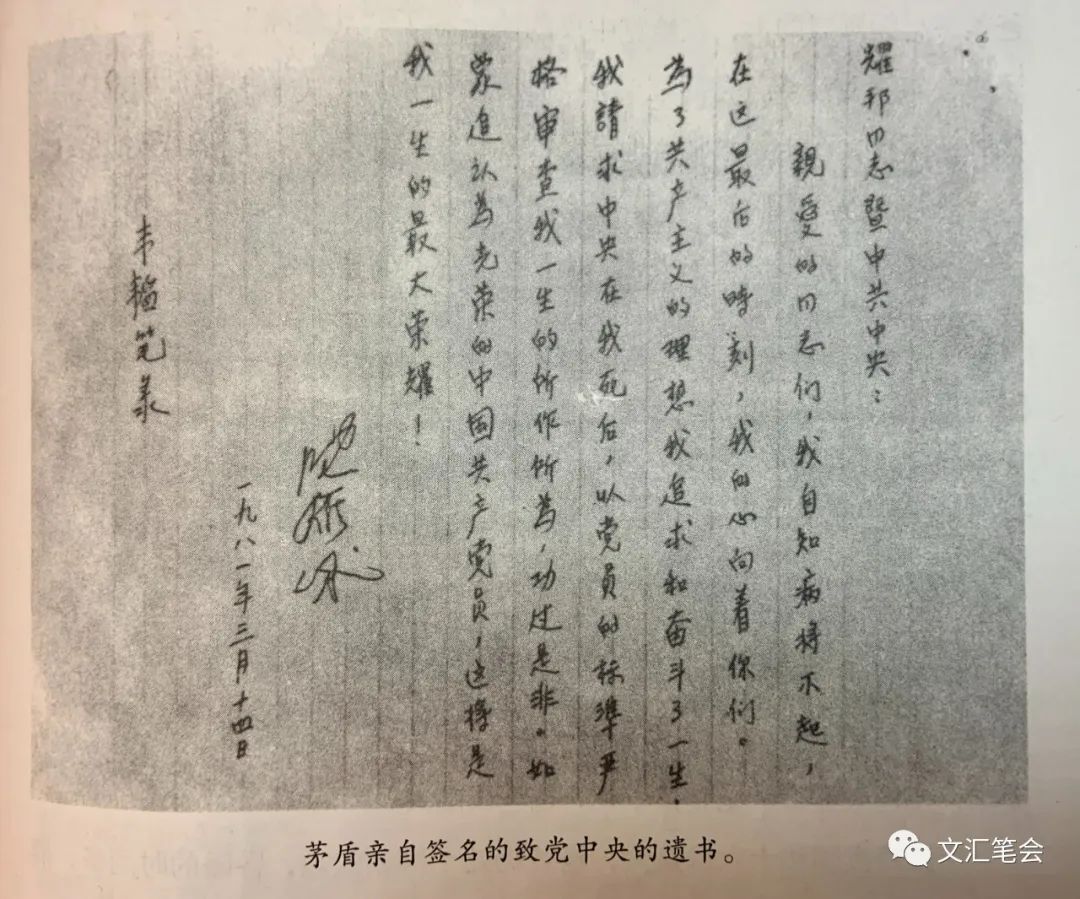 耀邦同志暨中共中央：
親愛的同志们，我自知病将不起，
在这最后的時刻，我的心向着你们。
為了共产主义的理想我追求和奋斗了一生，
我請求中央在我死后，以党員的标準严
格审查我一生的所作所為，功过是非。如
蒙追认為光荣的中国共产党员，这将是
我一生的最大荣耀！
沈雁冰
一九八一年三月十四日
韦韬笔录
茅盾亲自签名的致党中央的遗书。
文汇笔会